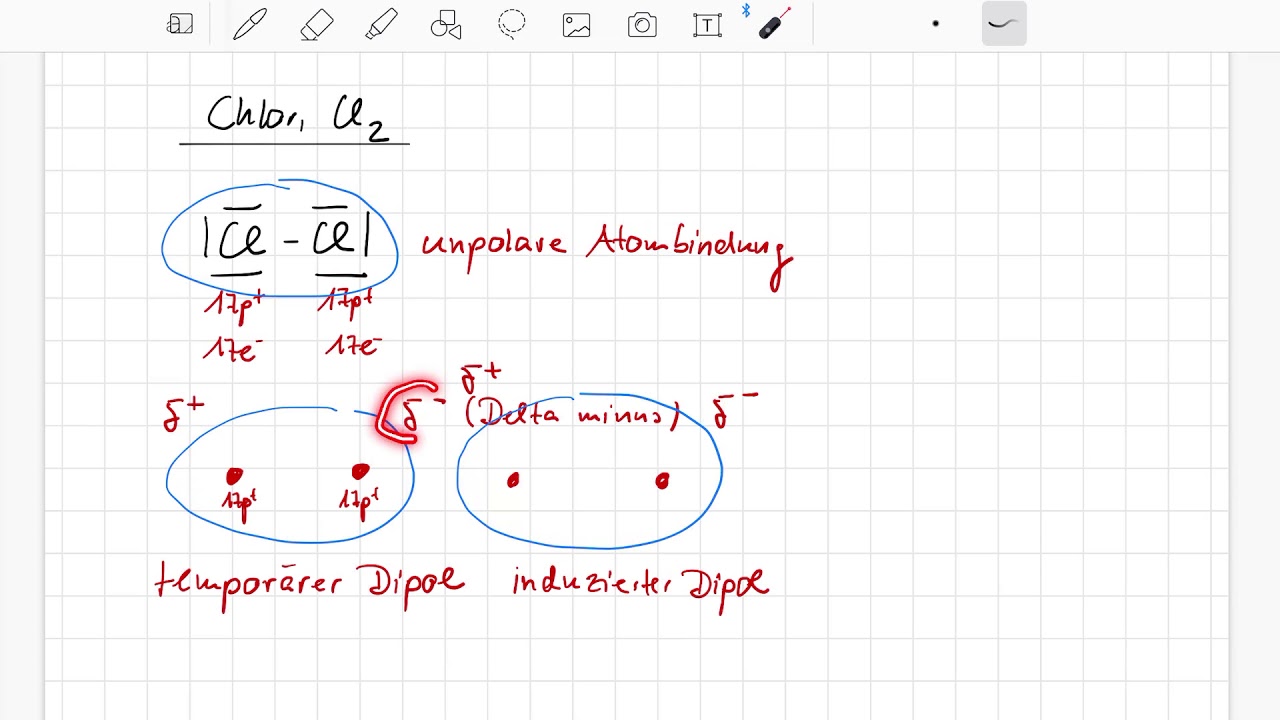 Chlor, Cl₂
|Cl - Cl| unpolare Atombindung
17p⁺ 17p⁺
17e⁻ 17e⁻
δ⁺
δ⁺ δ⁻ (Delta minus) δ⁻
17p⁺ 17p⁺
temporärer Dipol induzierter Dipol